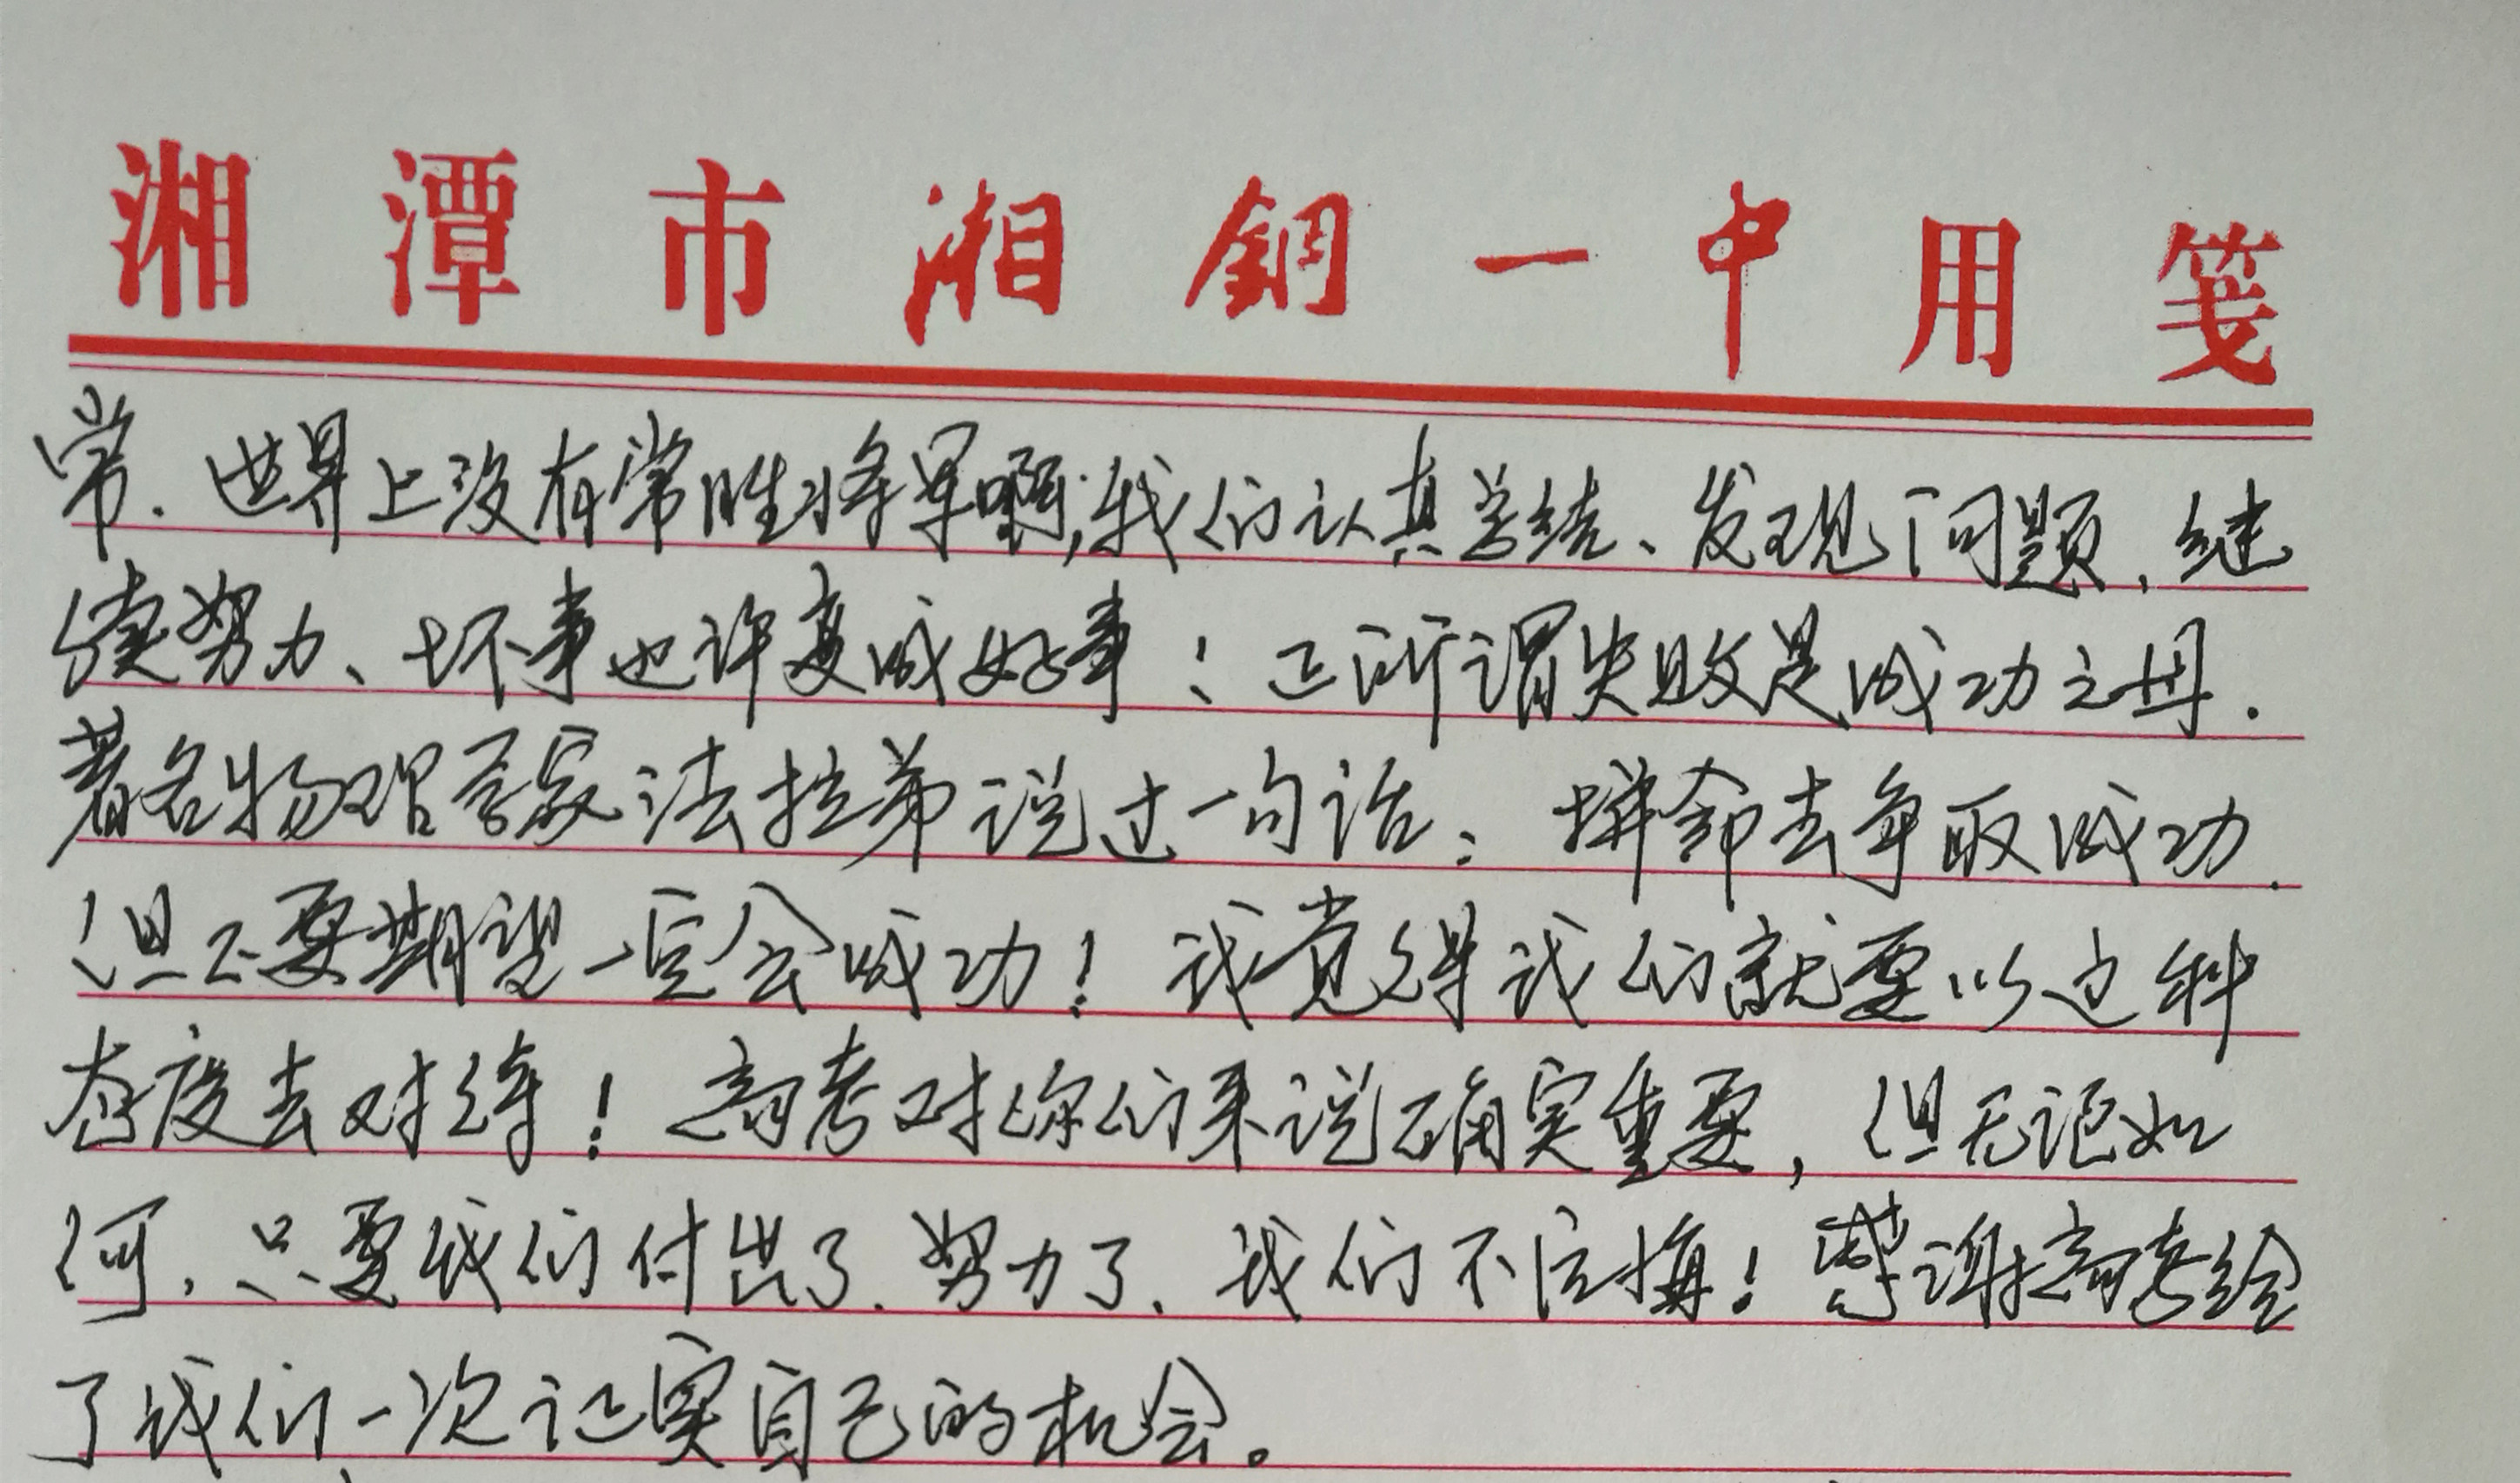 湘潭市湘钢一中用笺
常.世界上没有常胜将军啊;我们认真总结、发现问题,继
续努力、坏事也许变成好事!正所谓失败是成功之母.
著名物理学家法拉第说过一句话:拼命去争取成功.
但不要期望一定会成功!我觉得我们就要以这种
态度去对待!高考对你们来说确实重要,但无论如
何,只要我们付出了.努力了、我们不后悔!感谢高考给
了我们一次证实自己的机会。